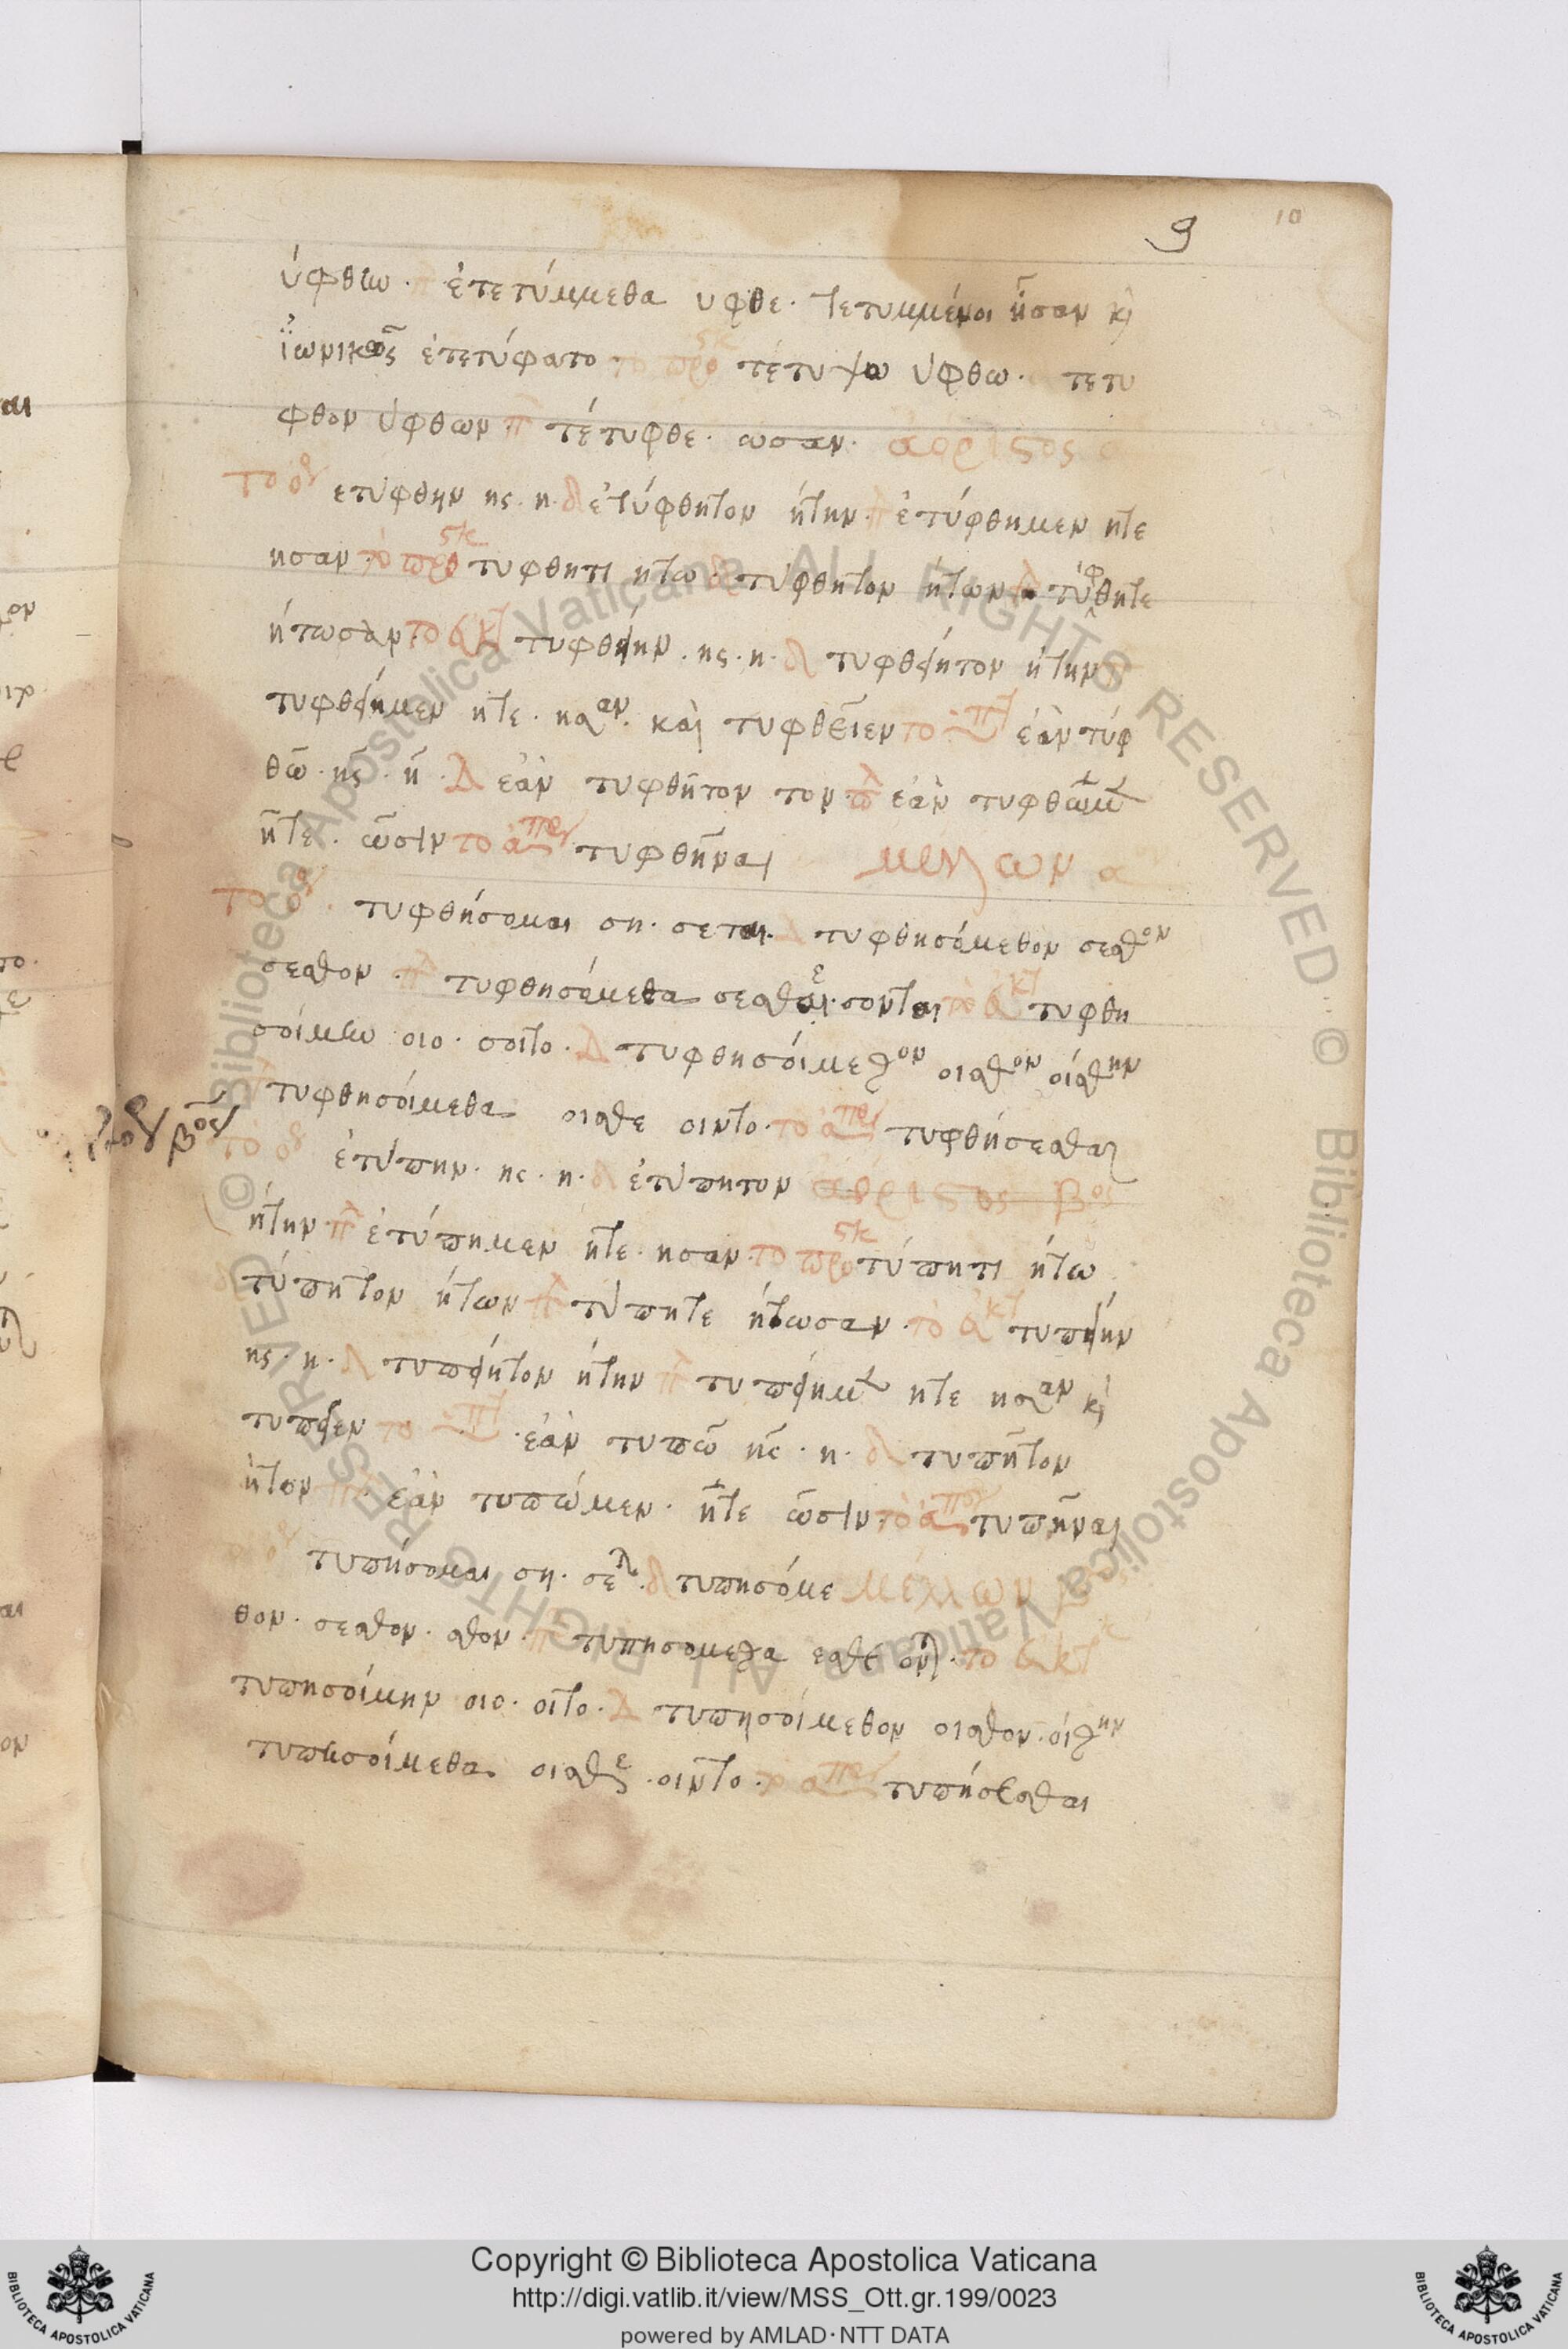 9 10
ύφθω· π ἐτετύμμεθα υφθε· τετυμμένοι ἦσαν κὶ
ἰωνικῶς ἐτετύφατο· το προστκ τέτυψο ύφθω· τετυ
φθον ύφθων π τέτυφθε· ωσαν· ἀοριστος α
το ορ ετύφθην ης· η· δ ἐτύφθητον ήτην· π ἐτύφθημεν ητε
ησαν· το προστκ τυφθητι ητω δ τύφθητον ήτων π τύφθητε
ήτωσαν· το ευκτ τυφθείην· ης· η· δ τυφθείητον ήτην π
τυφθείημεν ητε· ησαν· καὶ τυφθεῖεν το υποτ ἐὰν τυφ
θῶ· ῆς· ῆ· Δ ἐὰν τυφθῆτον τον· π ἐὰν τυφθῶμεν
ῆτε· ῶσιν το ἀπαρ τυφθῆναι μελλων α
το ορ· τυφθήσομαι ση· σεται· Δ τυφθησόμεθον σεσθον
σεσθον· π τυφθησόμεθα σεσθε· σονται το ευκτ τυφθη
σοίμην οιο· σοιτο· Δ τυφθησοίμεθον οισθον οίσθην
π τυφθησοίμεθα οισθε οιντο· το ἀπαρ τυφθήσεσθαι
βος
το ορ ἐτύπην· ης· η· δ ἐτύπητον ἀοριστος βος
ήτην· π ἐτύπημεν ητε· ησαν· το προστκ τύπητι ήτω
δ τύπητον ήτων π τύπητε ήτωσαν· το ευκτ τυπείην
ης· η· Δ τυπείητον ήτην π τυπείημεν ητε ησαν κὶ
τυπεῖεν το υποτ· ἐὰν τυπῶ ῆς· η· δ τυπῆτον
ῆτον π· ἐὰν τυπώμεν· ῆτε ῶσιν το ἀπαρ τυπῆναι
το ορ τυπήσομαι ση· σεται· δ τυπησόμε μέλλων β
θον· σεσθον· σθον· π τυπησομεθα εσθε ονται· το ευκτ
τυπησοίμην οιο· οιτο· Δ τυπησοίμεθον οισθον· οίσθην
τυπησοίμεθα οισθε· οιντο· το απαρ τυπήσεσθαι
Copyright © Biblioteca Apostolica Vaticana
http://digi.vatlib.it/view/MSS_Ott.gr.199/0023
powered by AMLAD·NTT DATA